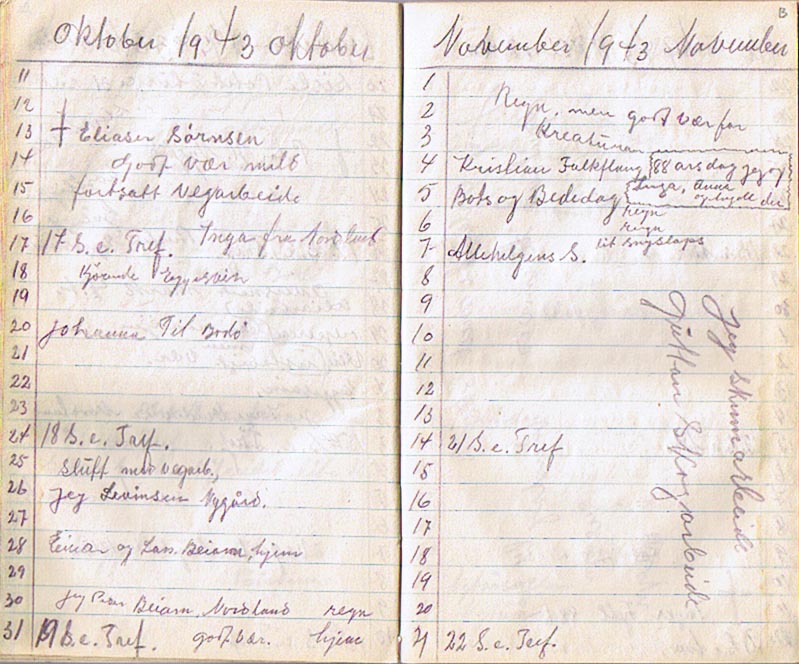 Oktober 1943 Oktober
11
12
13 † Eliaser Børnsen
14 godt vær mild
15 fortsatt vegarbeide
16
17 17 S. e. Tref. Inga fra Nordland
18
19
20 Johanna Til Bodö
21
22
23
24 18 S. e. Tref.
25 Slutt med vegarb.
26 Jeg Levinsen Nygård.
27
28 Einar og Lars. Beiarn, hjem
29
30 Jeg Beiarn. Nordland regn
31 19 S. e. Tref. godt vær. hjem
B
November 1943 November
1
2 Regn, men godt vær for
3 Kreaturer
4 Kristian Falkflaug 88 årsdag jeg og
5 Bots og Bededag Inga, Anna
6 regn
regn
7 Allehelgens S. lit snyslaps
8
9
10
11
12
13
14 21 S. e. Tref
15
16
17
18
19
20
21 22 S. e. Tref.
Jeg skinnarbeide
Skogarbeide